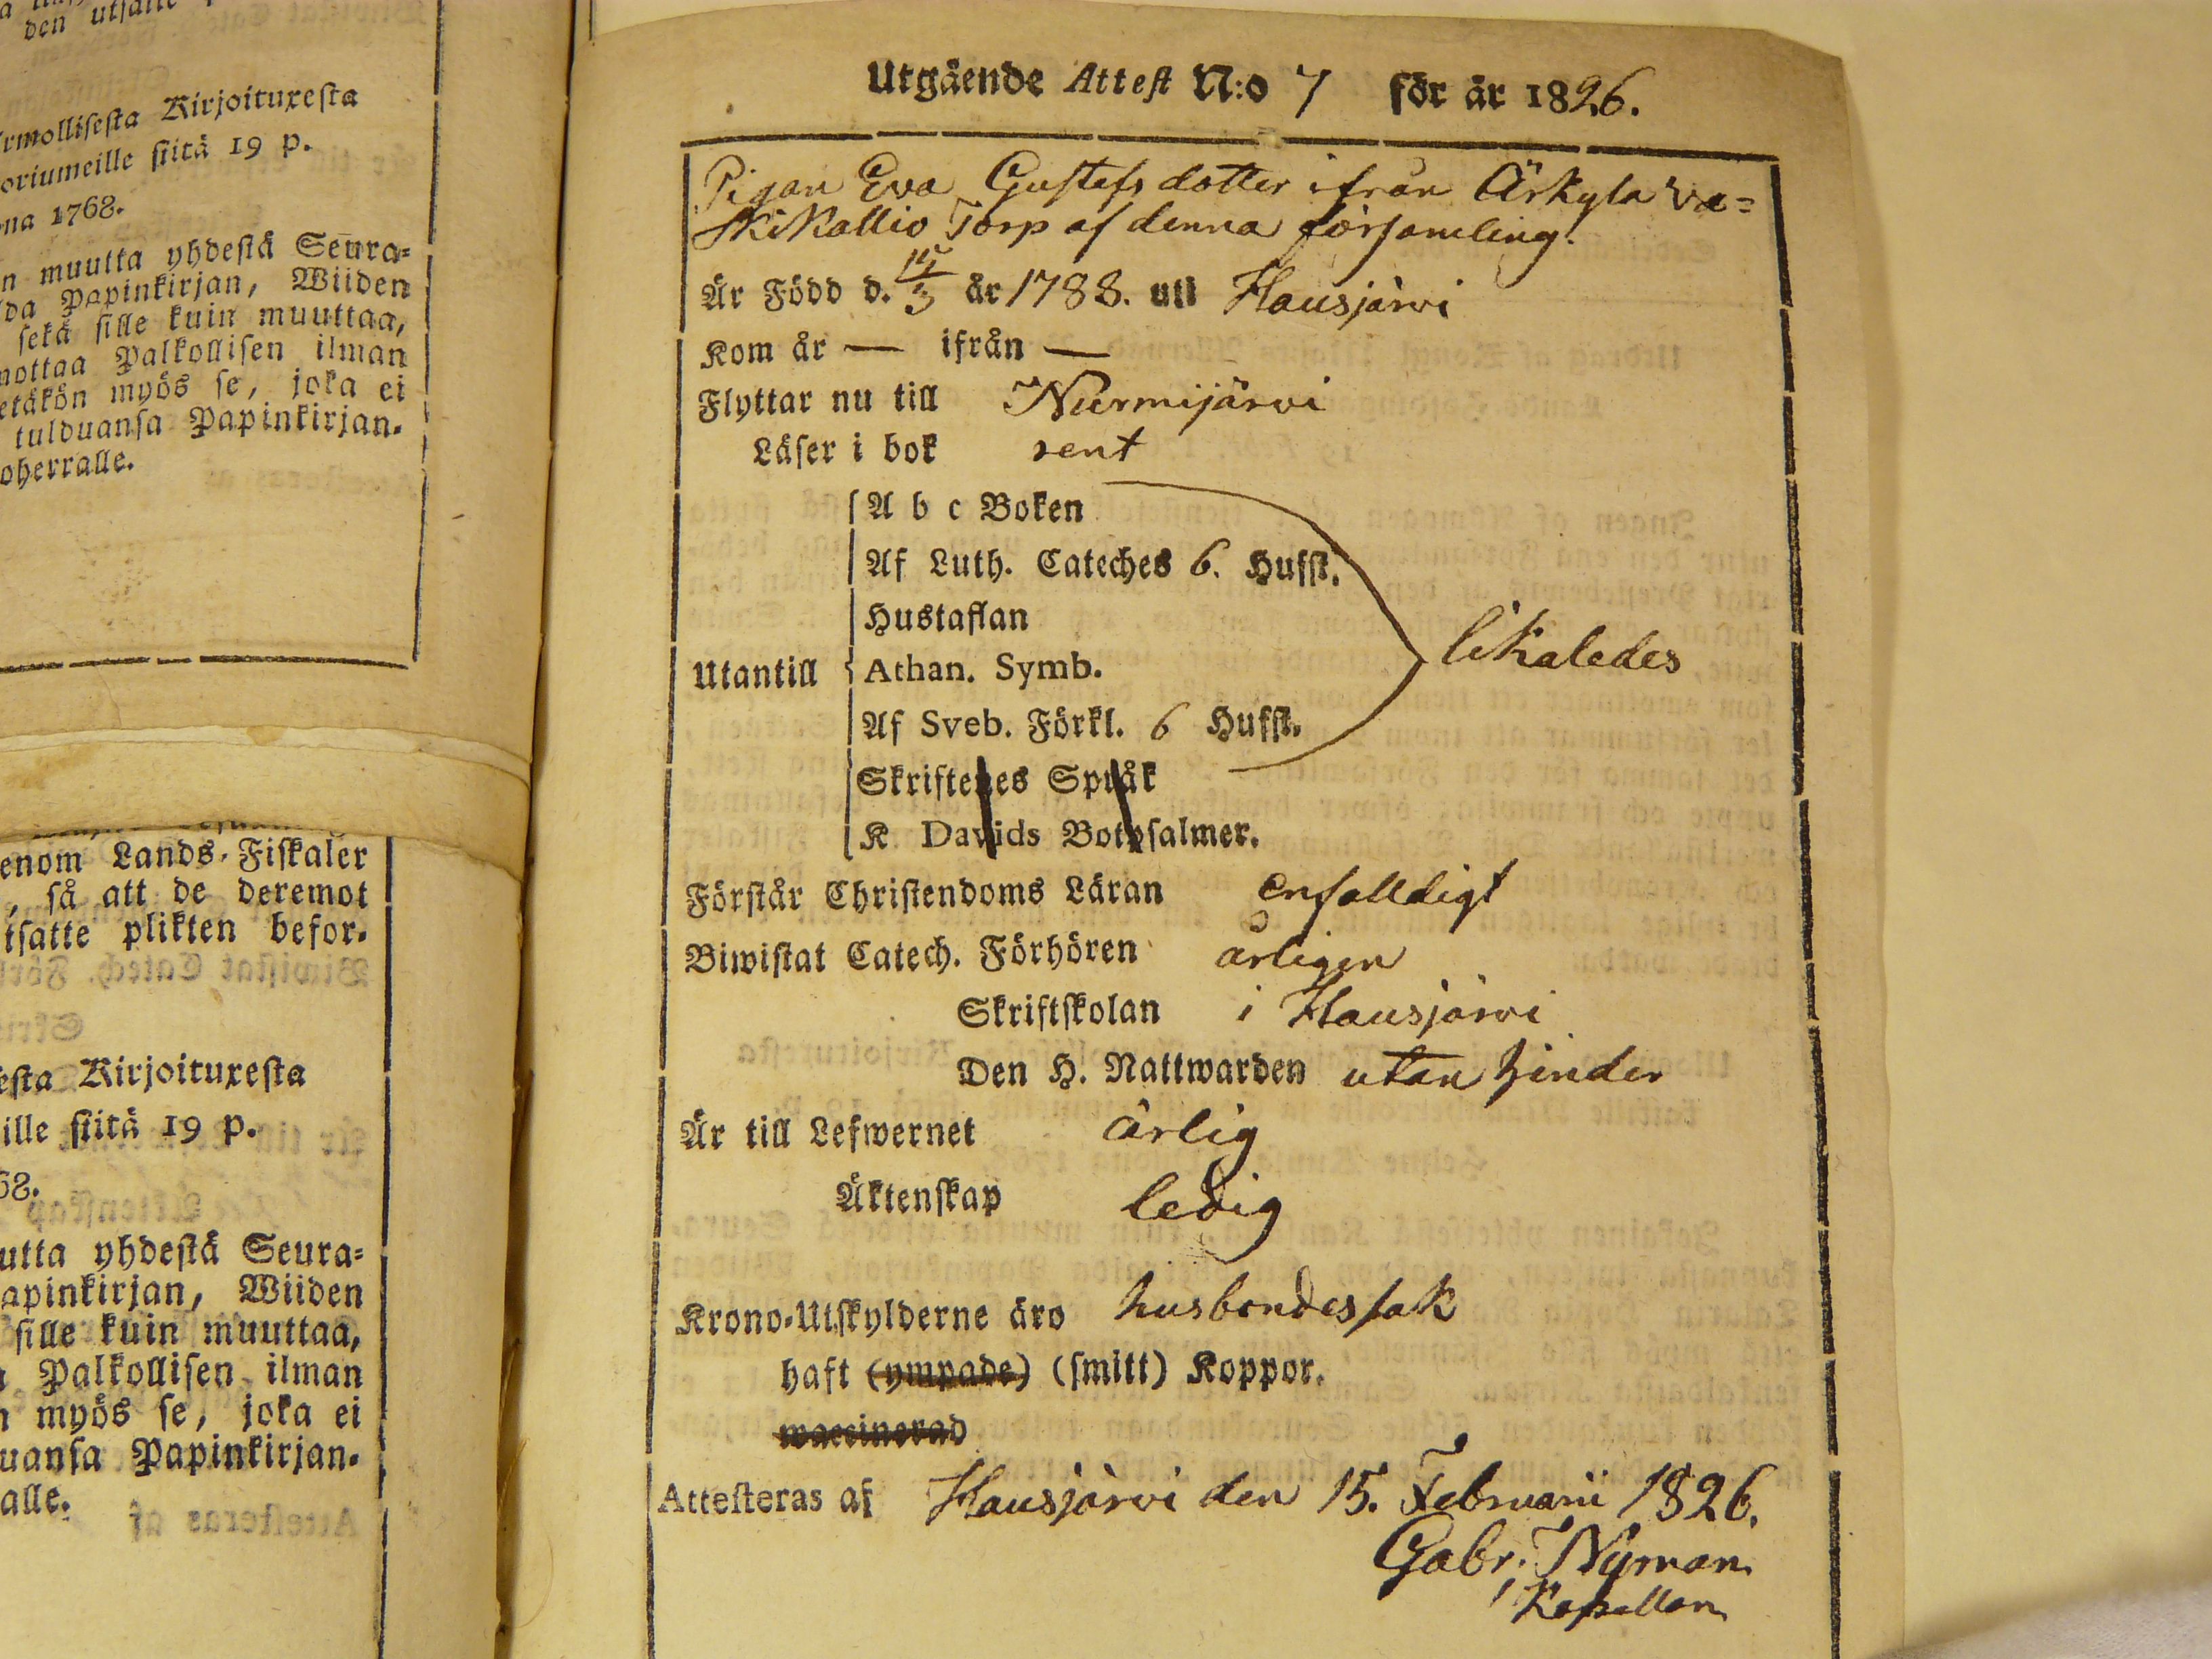 den utsatte
rmollisesta Kirjoituxesta
oriumeille siitä 19 p.
na 1768.
n muutta yhdestä Seura=
da Papinkirjan, Wiiden
sekä sille kuin muuttaa,
mottaa Palkollisen ilman
etäkön myös se, joka ei
tulduansa Papinkirjan.
oherralle.
enom Lands-Fiskaler
, så att de deremot
tsatte plikten befor-
esta Kirjoituxesta
ille siitä 19 p.
68.
utta yhdestä Seura=
apinkirjan, Wiiden
sille kuin muuttaa,
Palkollisen ilman
n myös se, joka ei
uansa Papinkirjan.
alle.
Utgående Attest N:o 7 för år 1826.
Pigan Eva Gustafs dotter ifrån Ärkylä Va=
skikallio Torp af denna församling.
Är Född d. 14/3 år 1788. uti Hausjärvi
Kom år — ifrån —
Flyttar nu till Nurmijärvi
Läser i bok rent
A b c Boken
Af Luth. Cateches 6. Hufst.
Hustaflan
Utantill Athan. Symb. likaledes
Af Sveb. Förkl. 6 Hufst.
Skriftenes Språk
K Davids Botpsalmer.
Förstår Christendoms Läran enfalldigt
Biwistat Catech. Förhören årligen
Skriftskolan i Hausjärvi
Den H. Nattwarden utan hinder
Är till Lefwernet ärlig
Äktenskap ledig
Krono-Utskylderne äro husbondes sak
haft (ympade) (smitt) Koppor.
waccinerad
Attesteras af Hausjärvi den 15. Februarii 1826.
Gabr. Nyman
Kapellan